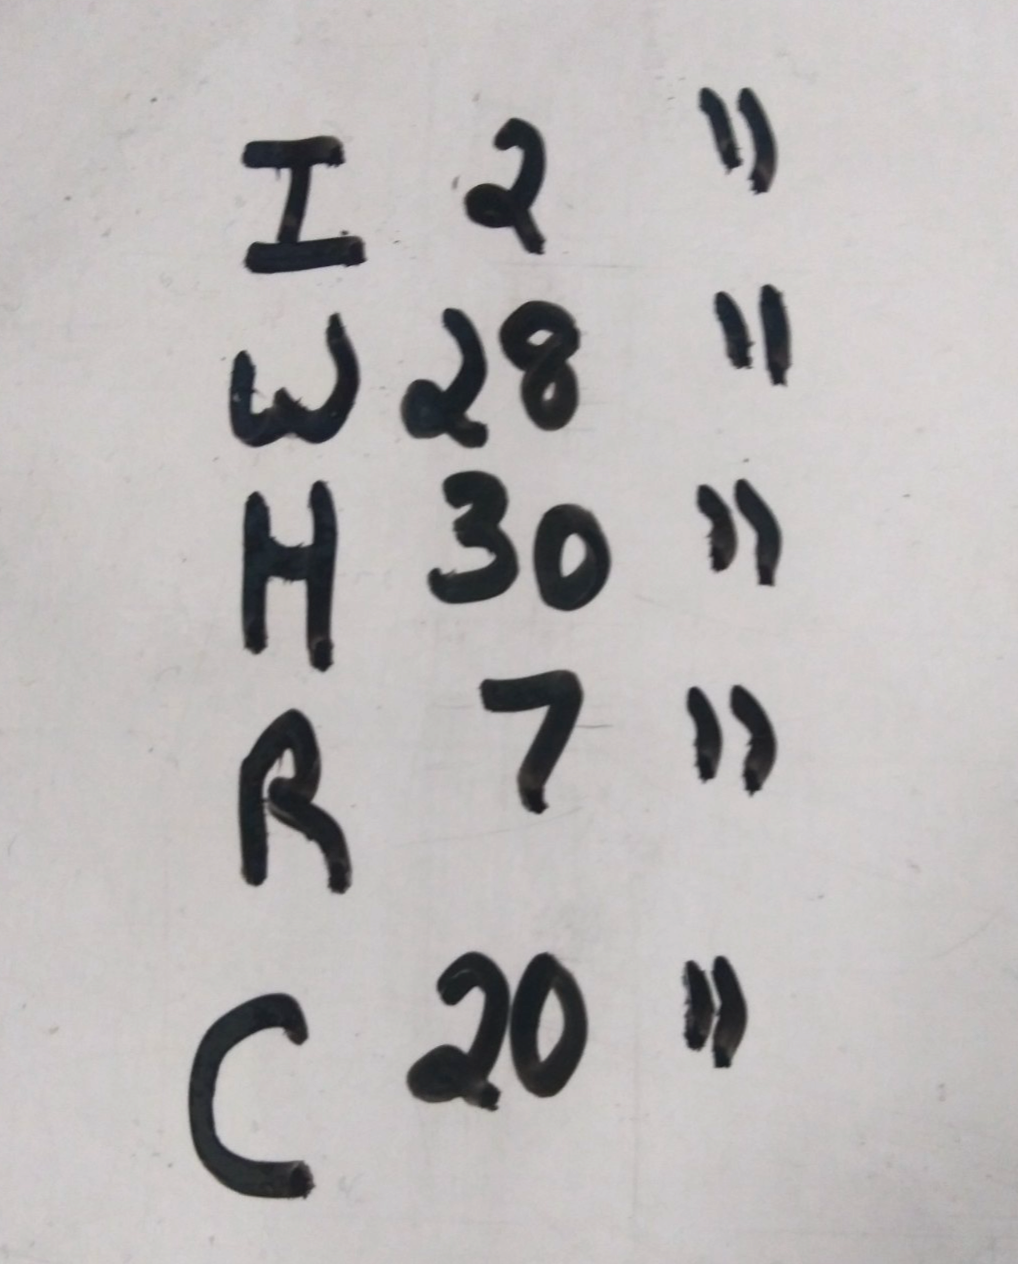 I 2 "
W 28 "
H 30 "
R 7 "
C 20 "